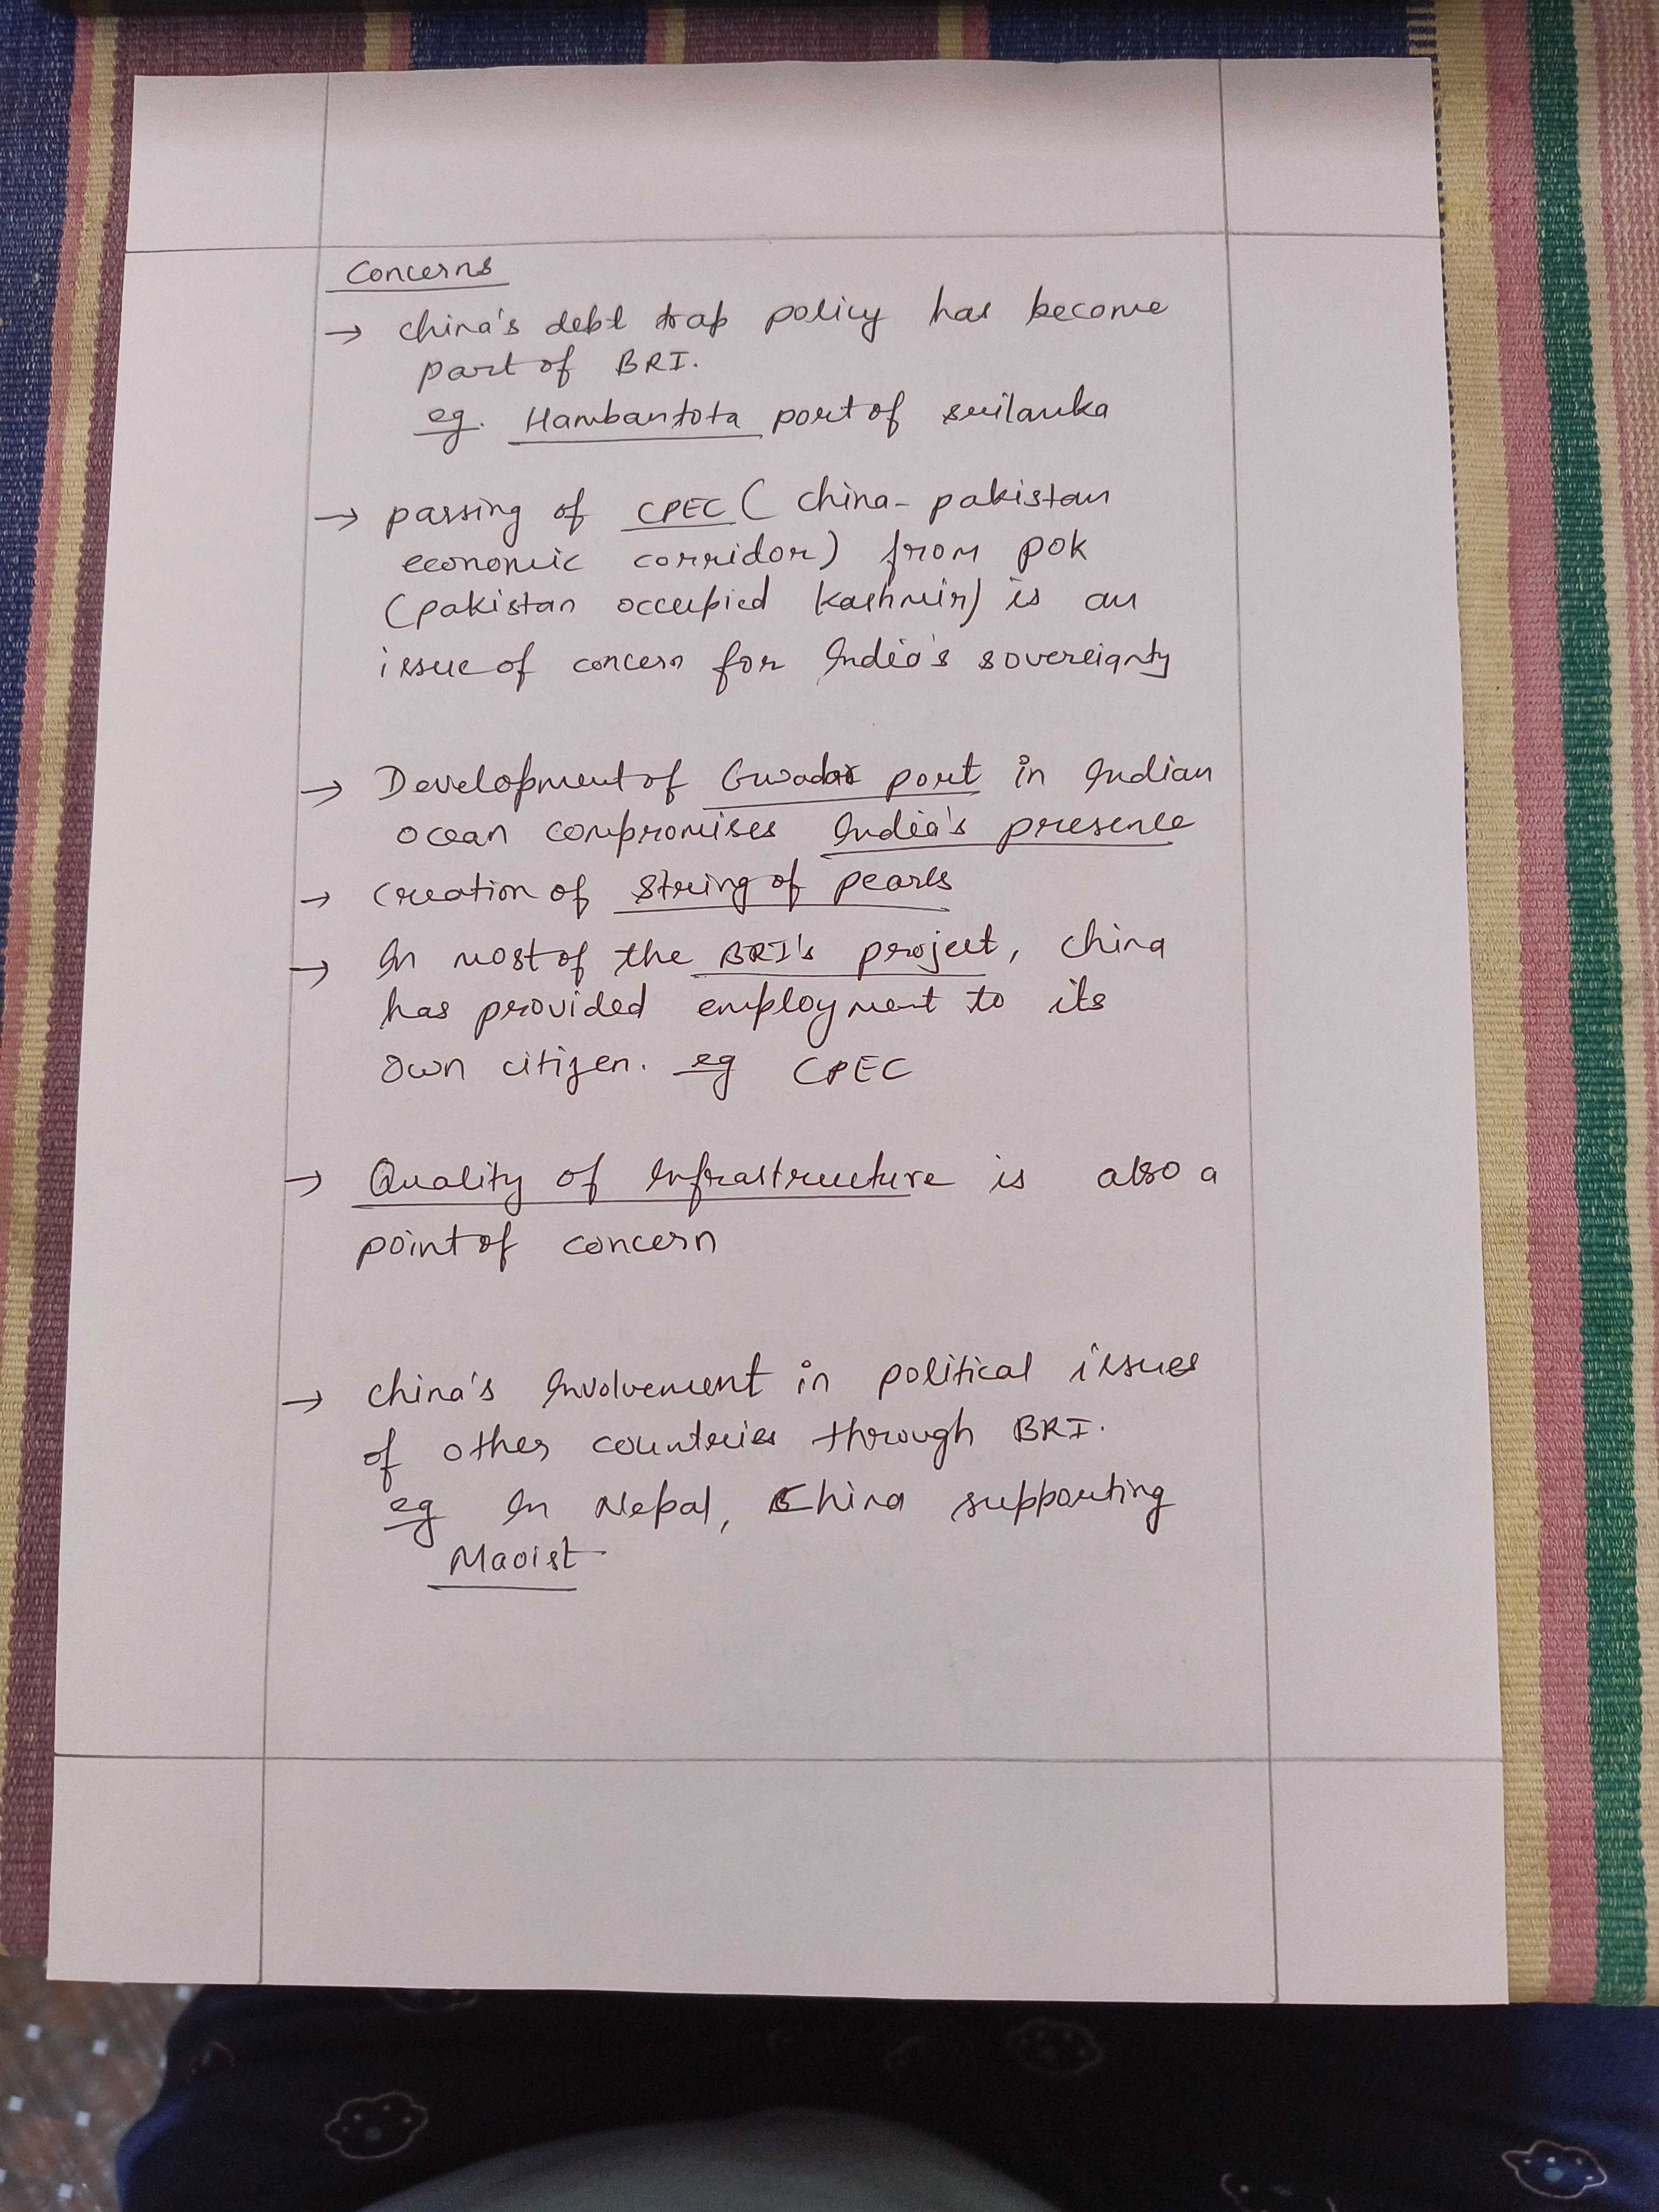 Concerns
→ China's debt trap policy has become
part of BRI.
eg. Hambantota port of srilanka
→ passing of CPEC ( China - pakistan
economic corridor) from POK
(pakistan occupied Kashmir) is an
issue of concern for India's sovereignty
→ Development of Gwadar port in Indian
ocean compromises India's presence
→ creation of string of pearls
→ In most of the BRI's project, China
has provided employment to its
own citizen. eg CPEC
→ Quality of Infrastructure is also a
point of concern
→ China's Involvement in political issues
of other countries through BRI.
eg In Nepal, China supporting
Maoist